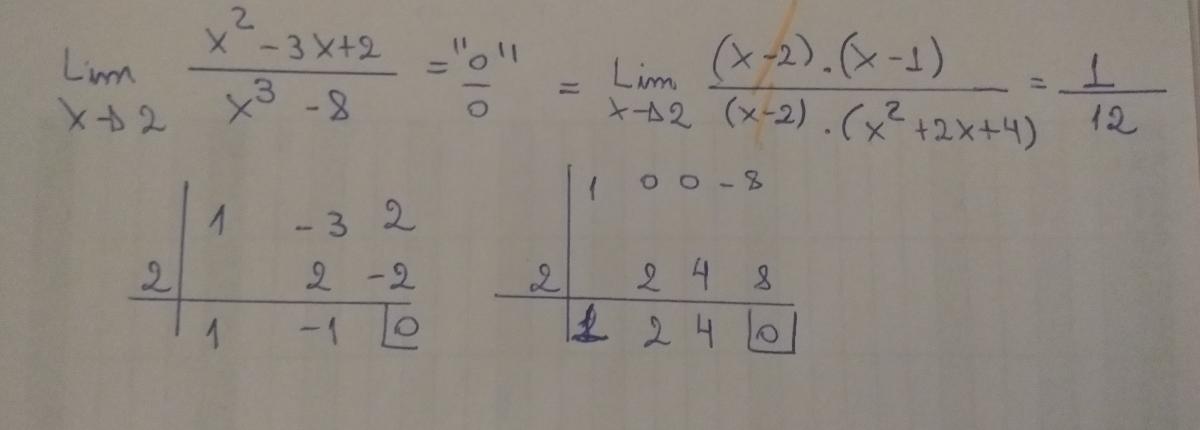 Lim x→2 x² - 3x + 2 / x³ - 8 = "0/0" = Lim x→2 (x-2).(x-1) / (x-2).(x²+2x+4) = 1/12
1 -3 2
2 2 -2
1 -1 0
1 0 0 -8
2 2 4 8
1 2 4 0